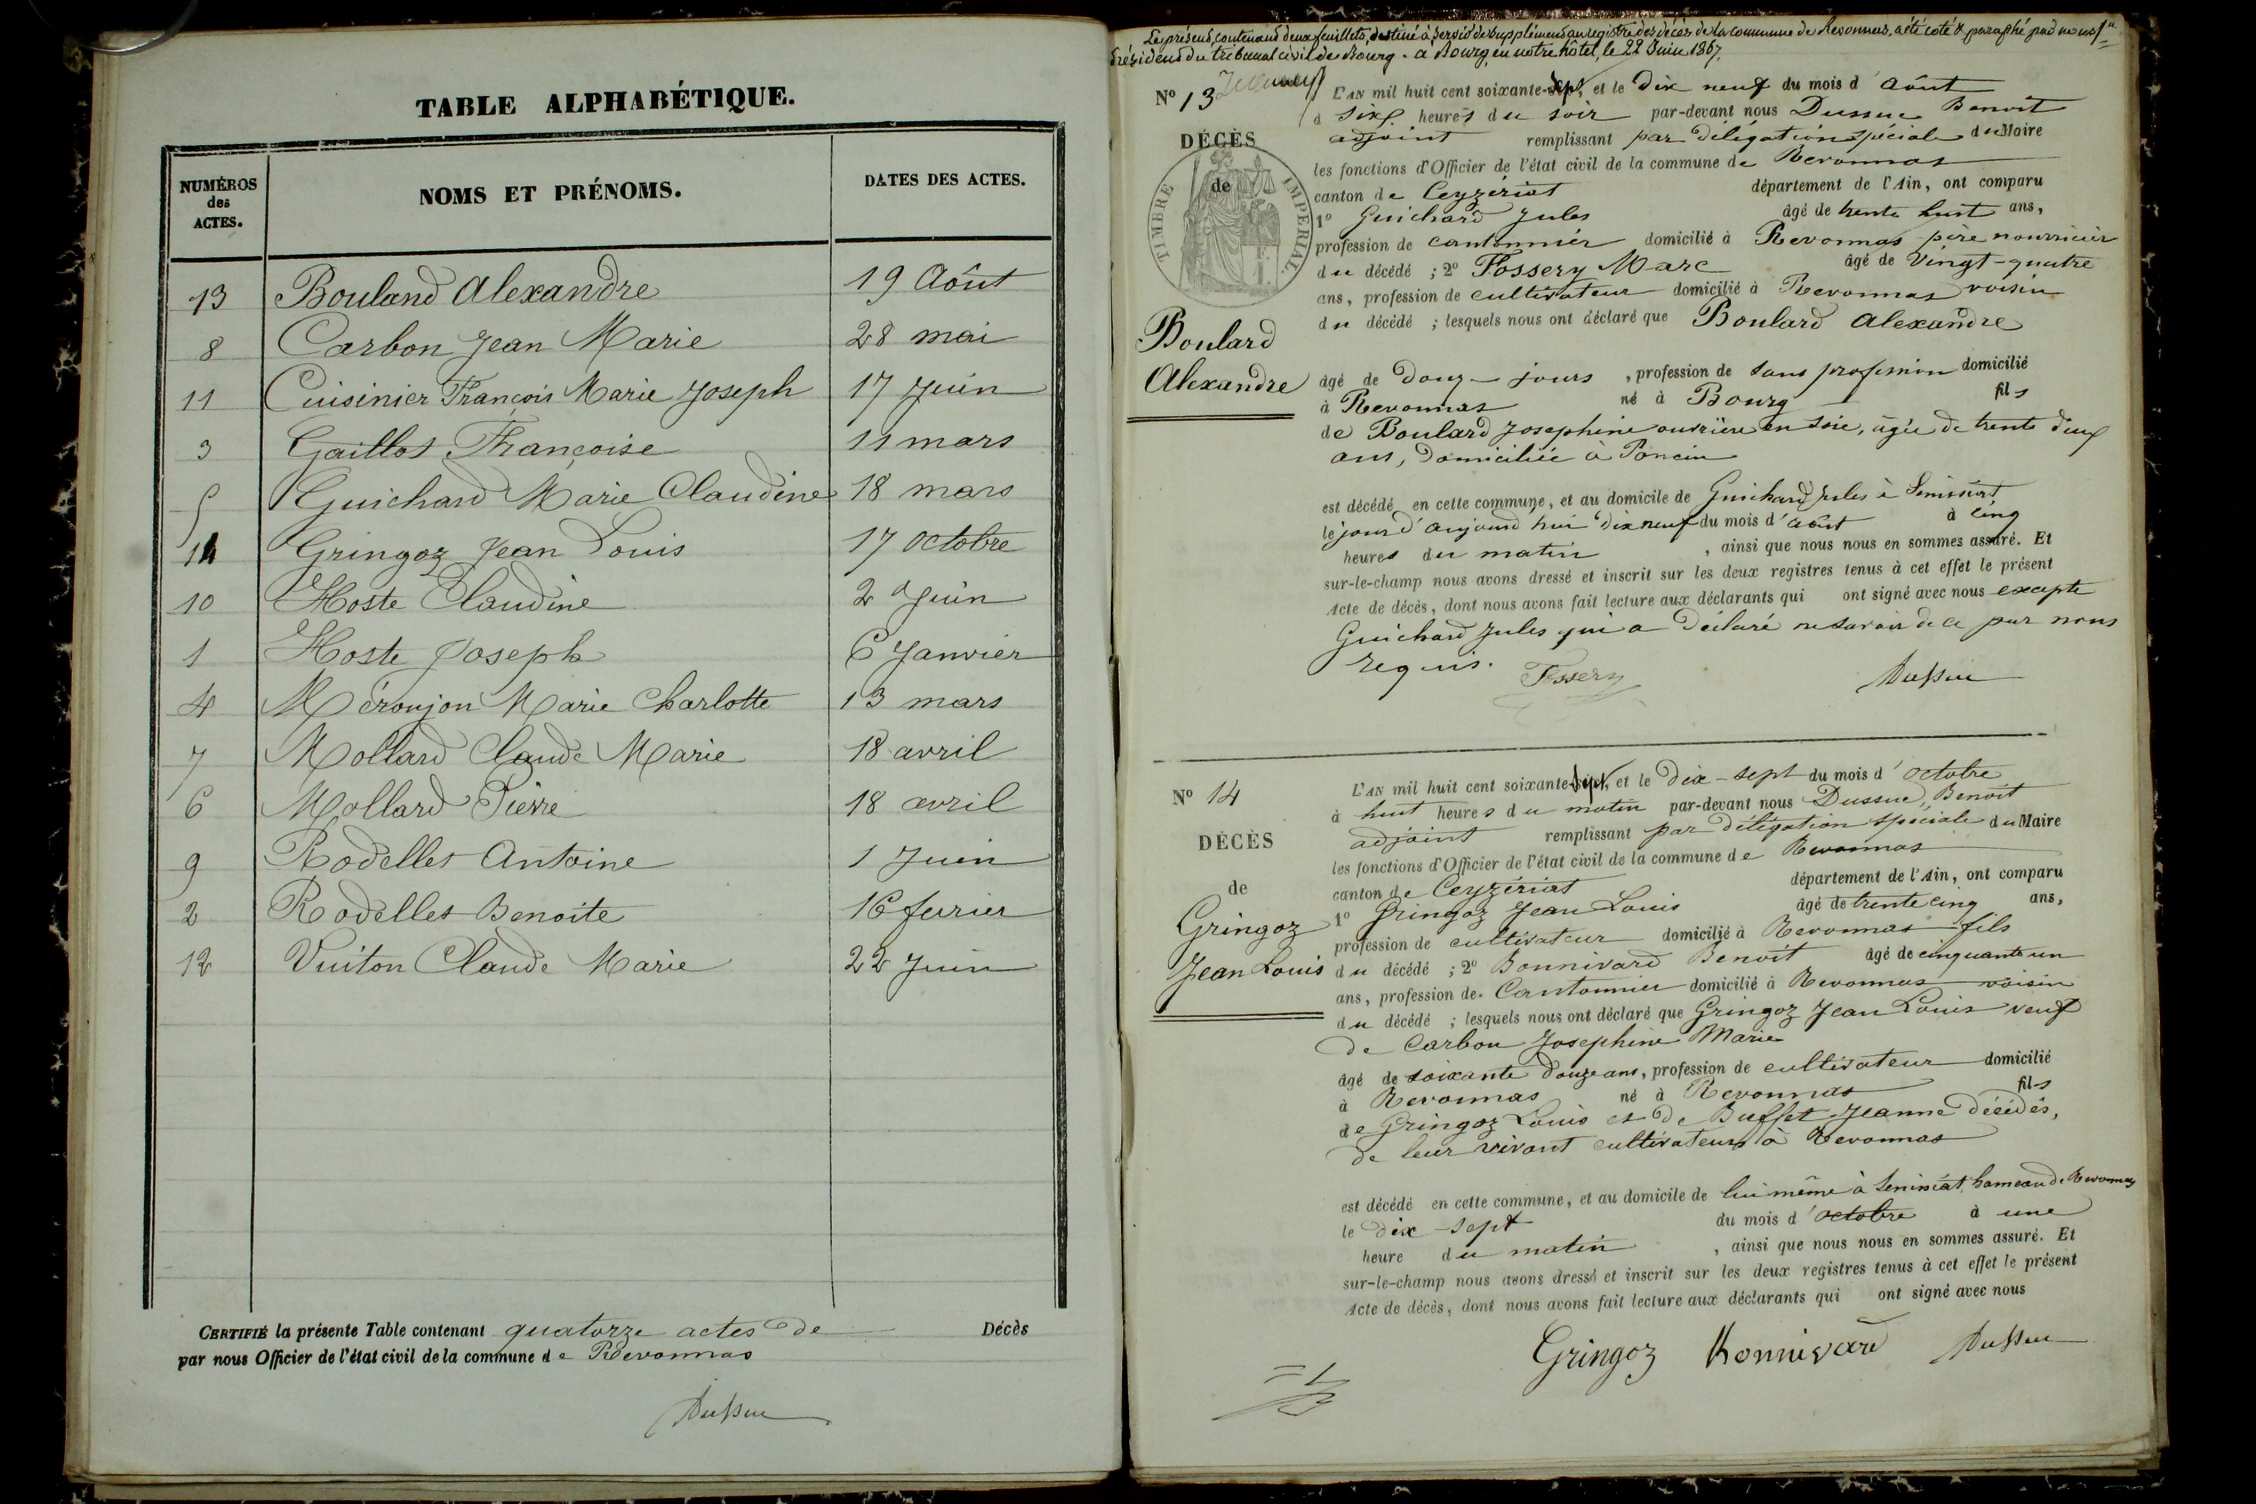 TABLE ALPHABÉTIQUE.
NUMÉROS
des
ACTES.
NOMS ET PRÉNOMS.
DATES DES ACTES.
13 Boulard Alexandre 19 Août
8 Carbon Jean Marie 28 mai
11 Cuisinier François Marie Joseph 17 Juin
3 Gaillot Françoise 11 mars
5 Guichard Marie Claudine 18 mars
14 Gringoz Jean Louis 17 octobre
10 Hoste Claudine 2 Juin
1 Hoste Joseph 6 Janvier
4 Méroujon Marie Charlotte 13 mars
7 Mollard Claude Marie 18 avril
6 Mollard Pierre 18 avril
9 Rodelles Antoine 1 Juin
2 Rodelles Benoite 16 fevrier
12 Vuiton Claude Marie 22 Juin
CERTIFIÉ la présente Table contenant quatorze actes de Décès
par nous Officier de l'état civil de la commune de Revonnas
Dussuc
Le présent, contenant deux feuillets, destiné à servir de supplément au registre des décès de la commune de Revonnas, a été coté & paraphé par nous
Président du tribunal civil de Bourg. à Bourg, en notre hôtel, le 22 Juin 1867.
No 13
DÉCÈS
de
TIMBRE IMPERIAL.
Boulard
Alexandre
L'AN mil huit cent soixante-sept, et le dix neuf du mois d'août
à six heures du soir par-devant nous Dussuc Benoit
adjoint remplissant par délégation spéciale du Maire
les fonctions d'Officier de l'état civil de la commune de Revonnas
canton de Ceyzériat département de l'Ain, ont comparu
1o Guichard Jules âgé de trente huit ans,
profession de cantonnier domicilié à Revonnas père nourricier
du décédé ; 2o Fossery Marc âgé de vingt-quatre
ans, profession de cultivateur domicilié à Revonnas voisin
du décédé ; lesquels nous ont déclaré que Boulard Alexandre
âgé de douze jours , profession de sans profession domicilié
à Revonnas né à Bourg fils
de Boulard Josephine ouvrière en soie, âgée de trente deux
ans, domiciliée à Poncin
est décédé en cette commune, et au domicile de Guichard Jules à Senissiat
le jour d'aujourd'hui dix neuf du mois d'août à cinq
heures du matin , ainsi que nous nous en sommes assuré. Et
sur-le-champ nous avons dressé et inscrit sur les deux registres tenus à cet effet le présent
Acte de décès, dont nous avons fait lecture aux déclarants qui ont signé avec nous excepté
Guichard Jules qui a déclaré ne savoir de ce par nous
requis.
Fossery Dussuc
No 14
DÉCÈS
de
Gringoz
Jean Louis
L'AN mil huit cent soixante-sept, et le dix-sept du mois d'octobre
à huit heures du matin par-devant nous Dussuc, Benoit
adjoint remplissant par délégation spéciale du Maire
les fonctions d'Officier de l'état civil de la commune de Revonnas
canton de Ceyzériat département de l'Ain, ont comparu
1o Gringoz Jean Louis âgé de trente cinq ans,
profession de cultivateur domicilié à Revonnas fils
du décédé ; 2o Bonnivard Benoit âgé de cinquante un
ans, profession de Cantonnier domicilié à Revonnas voisin
du décédé ; lesquels nous ont déclaré que Gringoz Jean Louis veuf
de Carbon Josephine Marie
âgé de soixante douze ans, profession de cultivateur domicilié
à Revonnas né à Revonnas fils
de Gringoz Louis et de Buffet Jeanne décédés,
de leur vivant cultivateurs à Revonnas
est décédé en cette commune, et au domicile de lui même à Senissiat hameau de Revonnas
le dix-sept du mois d'octobre à une
heure du matin , ainsi que nous nous en sommes assuré. Et
sur-le-champ nous avons dressé et inscrit sur les deux registres tenus à cet effet le présent
Acte de décès, dont nous avons fait lecture aux déclarants qui ont signé avec nous
Gringoz Bonnivard Dussuc